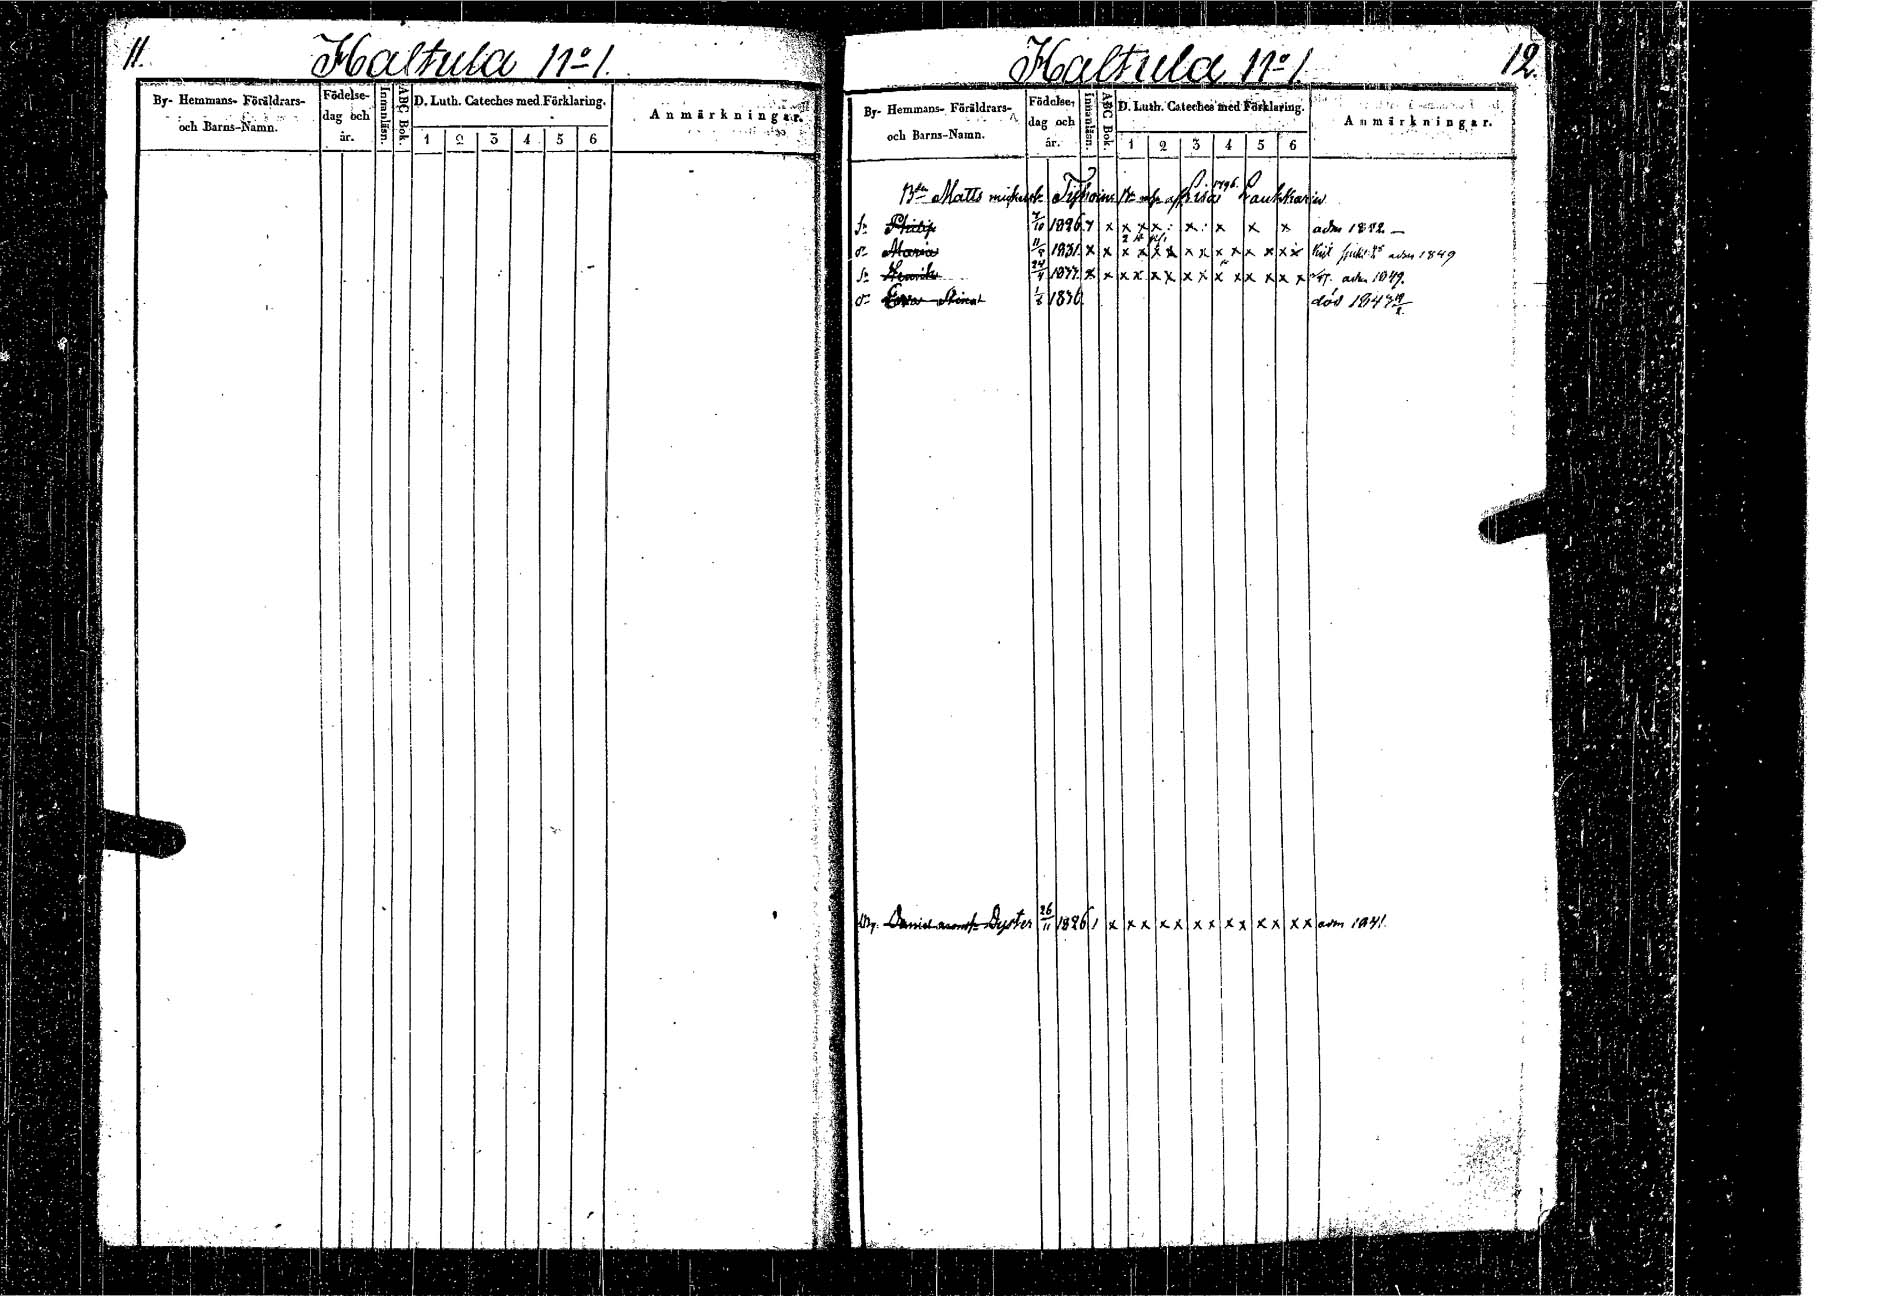 11.
Haltula No 1.
By- Hemmans- Föräldrars-
och Barns-Namn.
Födelse-
dag och
år.
Innanläsn.
ABC Bok.
D. Luth. Cateches med Förklaring.
1 2 3 4 5 6
Anmärkningar.
Haltula No 1
12.
By- Hemmans- Föräldrars-
och Barns-Namn.
Födelse-
dag och
år.
Innanläsn.
ABC Bok.
D. Luth. Cateches med Förklaring.
1 2 3 4 5 6
Anmärkningar.
Matts 1796.
Philip 7/10 1826 x x x x x x x x adm
Maria 1831 x x x x x x x x x x x x x x adm 1849
Henrik 24/4 x x x x x x x x x x x x x x adm
Stina 1836 död 1843
Daniel Dyster 26/11 1826 x x x x x x x x x x x x x adm 1841.